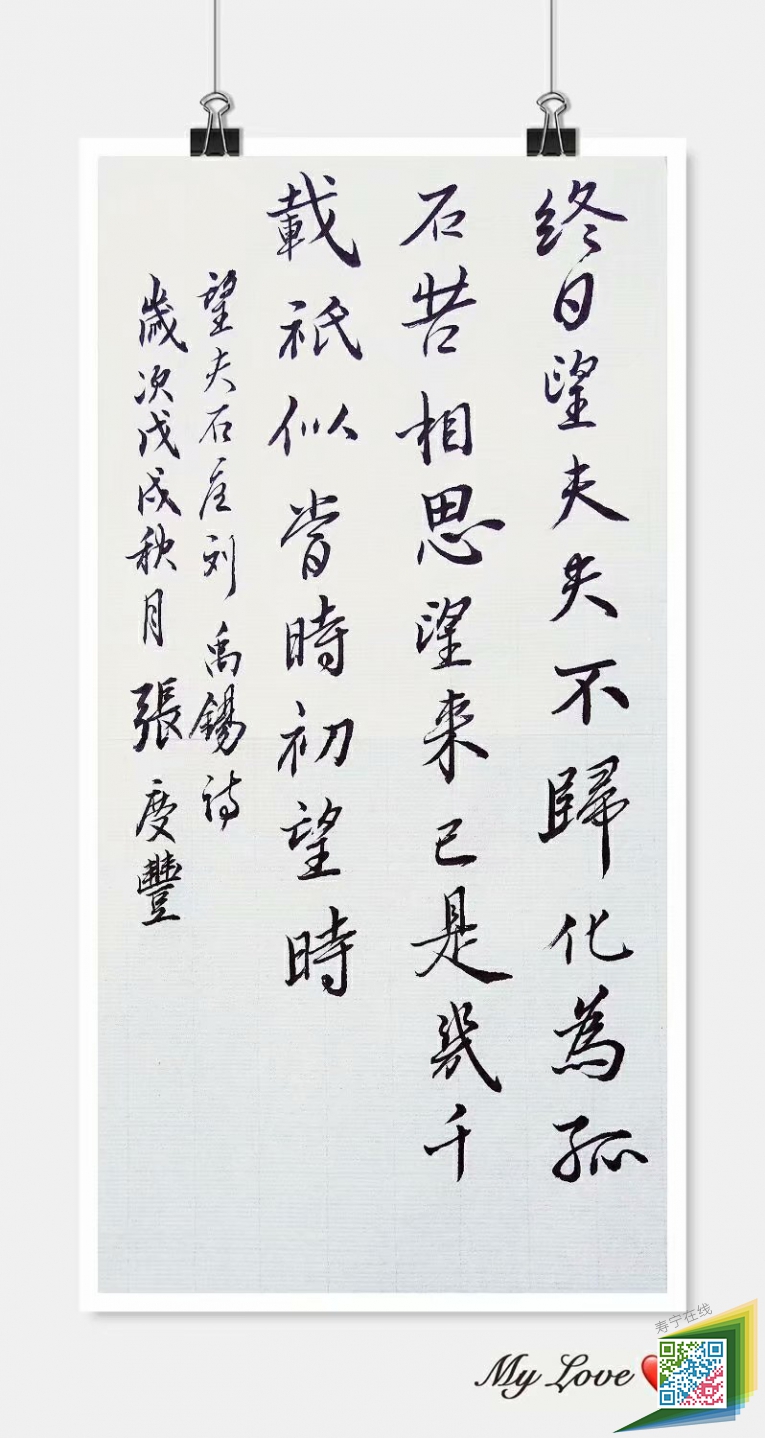 終日望夫夫不歸化為孤
石苦相思望来已是幾千
載祇似當時初望時
望夫石唐刘禹錫诗
歲次戊戌秋月張慶豐
My Love
寿宁在线